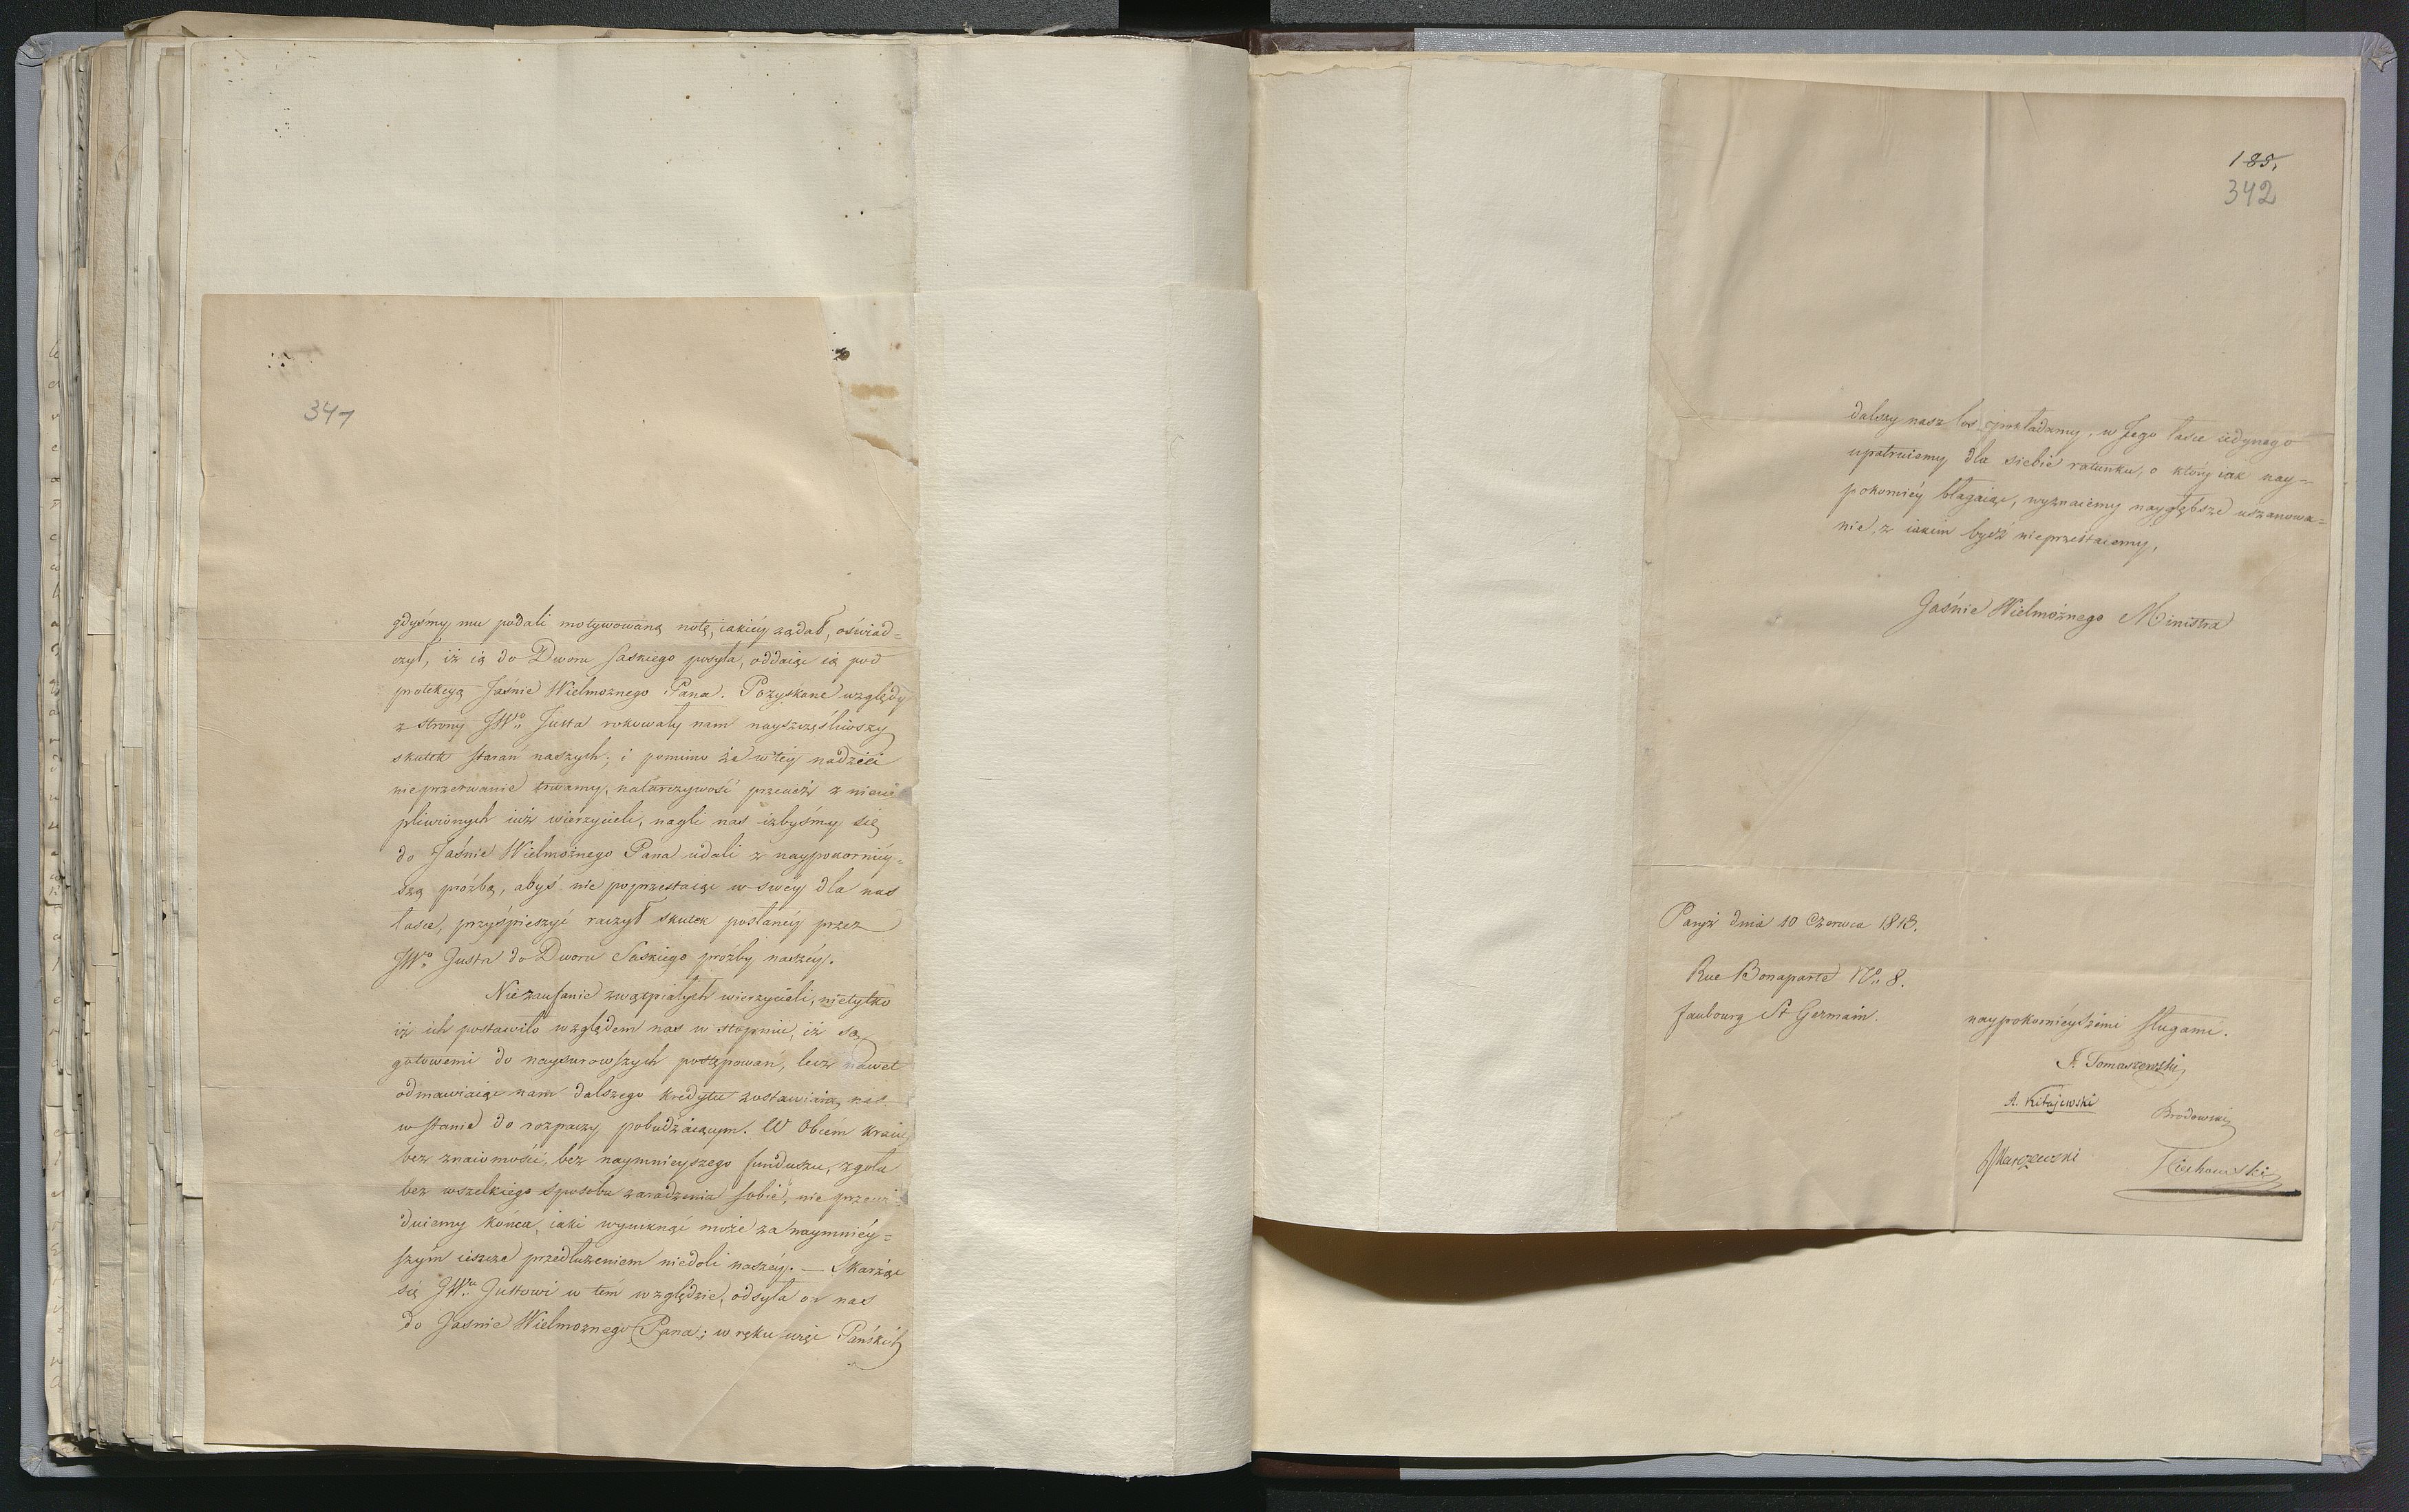 341
gdyśmy mu podali motywowaną notę, iakiéy żądał, oświad=
czył, iż ią do Dworu Saskiego posyła, oddaiąc ią pod
protekcyą Jaśnie Wielmożnego Pana. Pozyskane względy
z strony JWo. Justa rokowały nam nayszczęśliwszy
skutek starań naszych; i pomimo że w téy nadziei
nieprzerwanie trwamy, natarczywość przecież z niecier
pliwionych iuż wierzycieli, nagli nas iżbyśmy się
do Jaśnie Wielmożnego Pana udali z naypokorniéy=
szą proźbą, abyś nie poprzestaiąc w swéy dla nas
łasce, przyśpieszyć raczył skutek posłanéy przez
JWo. Justa do Dworu Saskiego proźby naszéy.
Niezaufanie zwątpiałych wierzycieli, nietylko
iż ich postawiło względem nas w stopniu, iż są
gotowemi do naysurowszych postępowań, lecz nawet
odmawiaiąc nam dalszego kredytu zostawiaią nas
w stanie do rozpaczy pobudzaiącym. W Obcém kraiu
bez znaiomości, bez naymnieyszego funduszu, zgoła
bez wszelkiego sposobu zaradzenia sobie, nie przewi
duiemy końca, iaki wyniknąć może za naymniéy=
szym ieszcze przedłużeniem niedoli naszéy. — Skarżąc
się JWu. Justowi w tém względzie, odsyła on nas
do Jaśnie Wielmożnego Pana; w ręku więc Pańskich
185.
342
dalszy nasz los pokładamy, w Jego łasce iedynego
upatruiemy dla siebie ratunku, o którą iak nay=
pokorniéy błagaiąc, wyznaiemy naygłębsze uszanowa=
nie, z iakim bydź nieprzestaiemy,
Jaśnie Wielmożnego Ministra
Paryż dnia 10 Czerwca 1813.
Rue Bonaparte No. 8.
faubourg St Germain.
naypokornieyszémi sługami.
F. Tomaszewski
A. Kitajewski Brodowski
Skarżewski